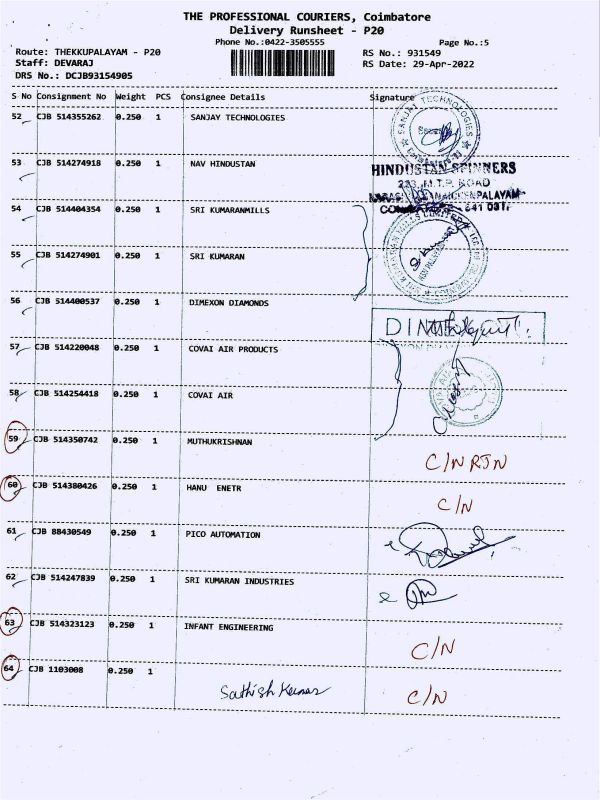 THE PROFESSIONAL COURIERS, Coimbatore
Delivery Runsheet - P20
Phone No.:0422-3505555
Page No.:5
Route: THEKKUPALAYAM - P20
RS No.: 931549
Staff: DEVARAJ
RS Date: 29-Apr-2022
DRS No.: DCJB93154905
S No Consignment No Weight PCS Consignee Details Signature
52 CJB 514355262 0.250 1 SANJAY TECHNOLOGIES
SANJAY TECHNOLOGIES
53 CJB 514274918 0.250 1 NAV HINDUSTAN
HINDUSTAN SPINNERS
223, M.T.P. ROAD
54 CJB 514404354 0.250 1 SRI KUMARANMILLS
55 CJB 514274901 0.250 1 SRI KUMARAN
56 CJB 514400537 0.250 1 DIMEXON DIAMONDS
57 CJB 514220048 0.250 1 COVAI AIR PRODUCTS
58 CJB 514254418 0.250 1 COVAI AIR
59 CJB 514350742 0.250 1 MUTHUKRISHNAN C/N RTN
60 CJB 514380426 0.250 1 HANU ENETR C/N
61 CJB 88430549 0.250 1 PICO AUTOMATION
62 CJB 514247839 0.250 1 SRI KUMARAN INDUSTRIES
63 CJB 514323123 0.250 1 INFANT ENGINEERING C/N
64 CJB 1103008 0.250 1 Sathish Kumar C/N